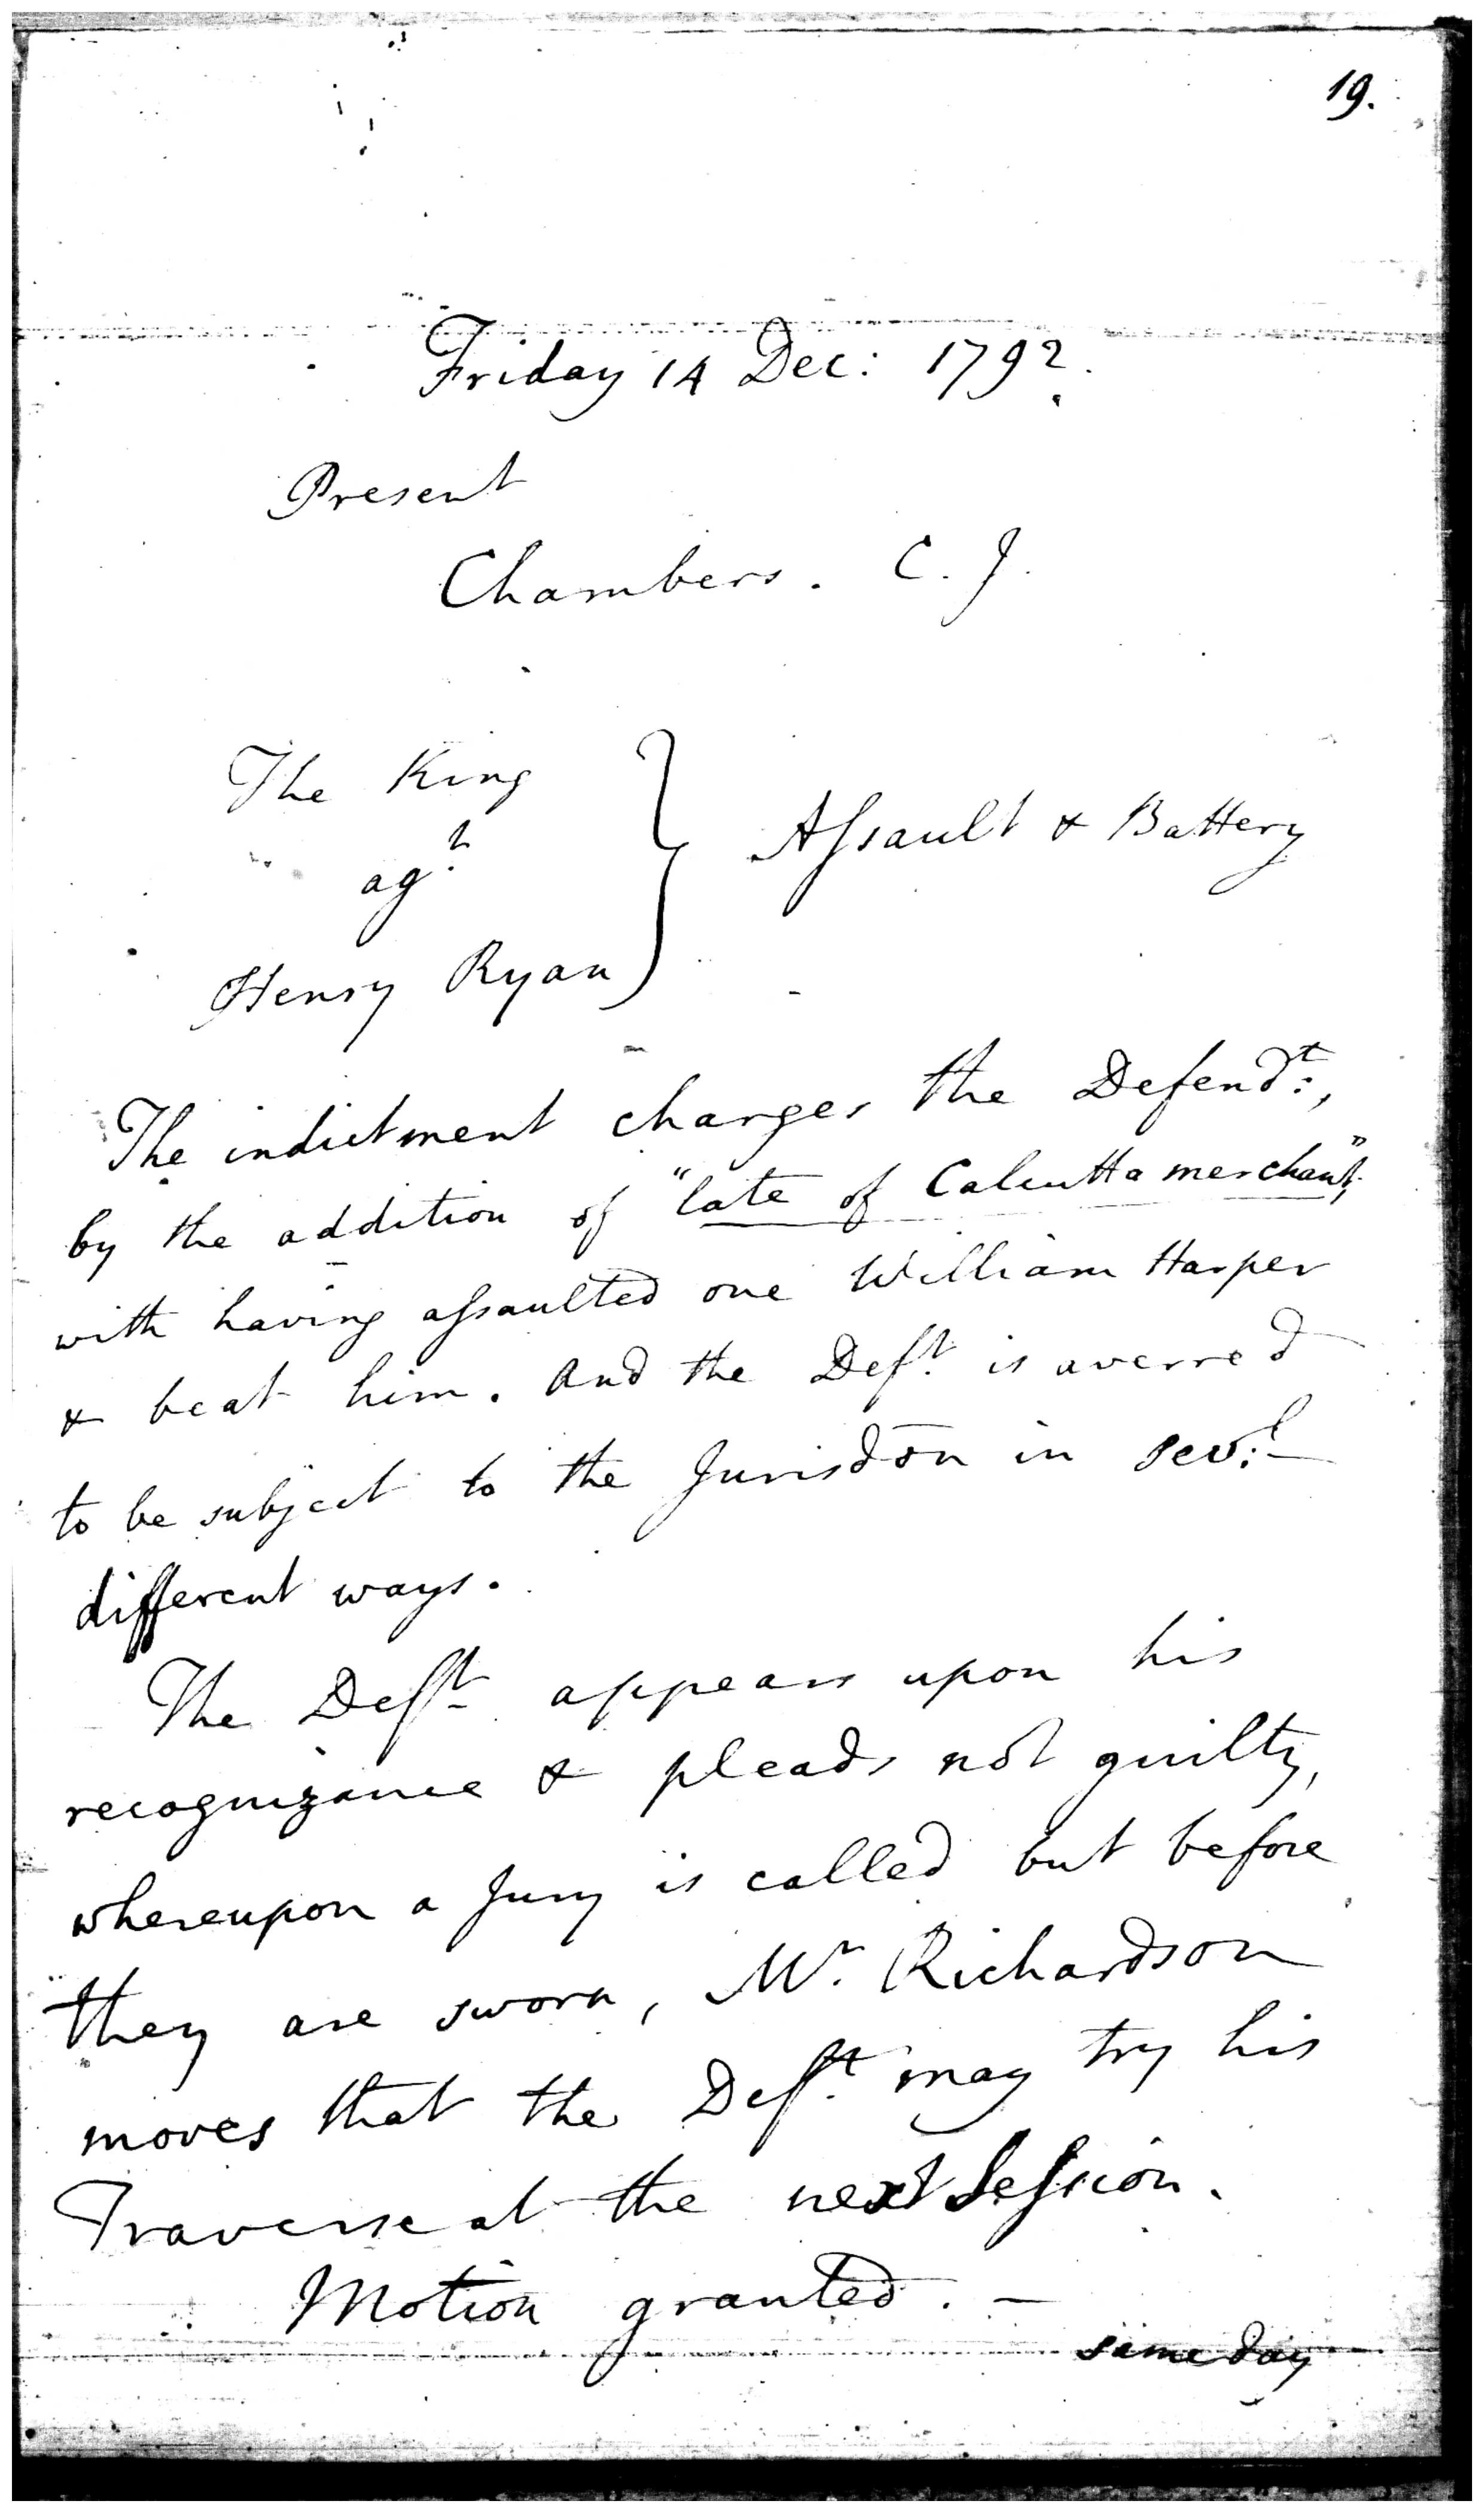 19.
Friday 14 Dec: 1792.
Present
Chambers. C. J.
The King
agt.
Henry Ryan
} Assault & Battery
The indictment charges the Defendt:,
by the addition of "late of Calcutta merchant",
with having assaulted one William Harper
& beat him. And the Deft. is averred
to be subject to the Jurisdōn in sev:l
different ways.
The Deft. appears upon his
recognizance & pleads not guilty,
whereupon a Jury is called but before
they are sworn, Mr. Richardson
moves that the Deft. may try his
Traverse at the next Session.
Motion granted. —
same day